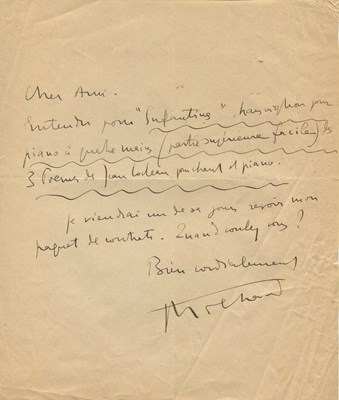 Cher Ami.
Entendu pour "Enfantines", transcription pour
piano à quatre mains (partie supérieure facile) les
3 Poèmes de Jean Cocteau pour chant et piano.
Je viendrai un de ces jours revoir mon
paquet de . Quand voulez vous ?
Bien cordialement